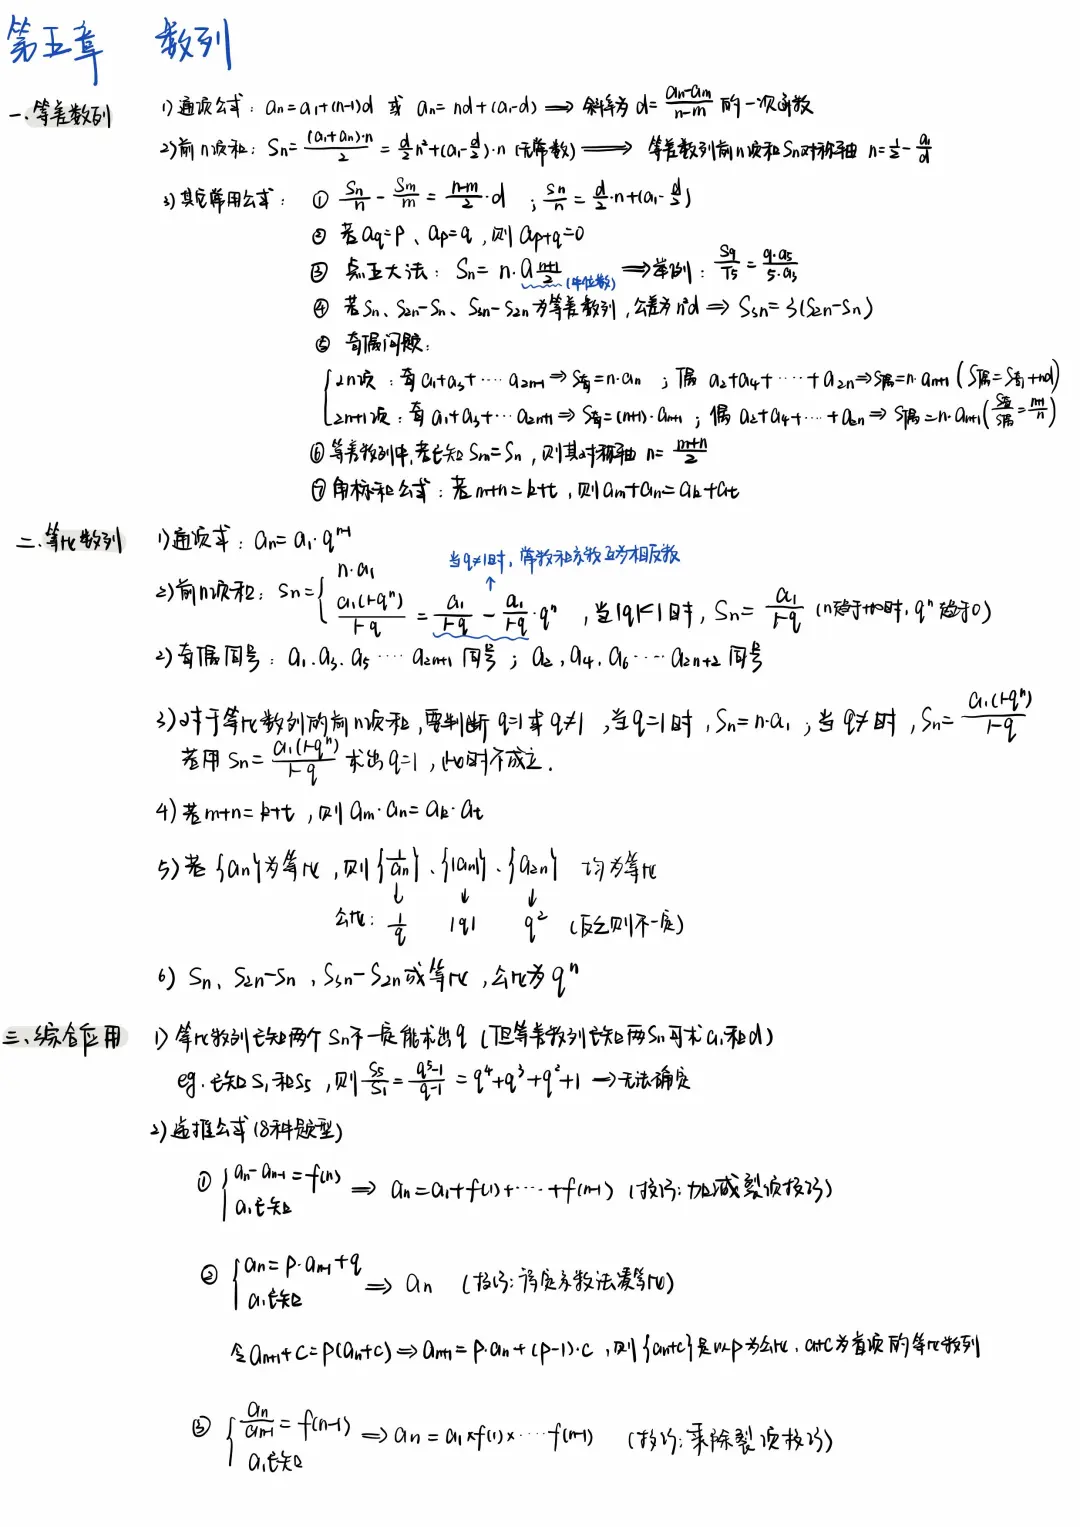 第五章 数列
一.等差数列 1)通项公式: an=a1+(n-1)d 或 an=nd+(a1-d) ⟹ 斜率为 d=(an-am)/(n-m) 的一次函数
2)前n项和: Sn=(a1+an)·n/2 = d/2 n²+(a1-d/2)·n (无常数) ⟹ 等差数列前n项和Sn对称轴 n=1/2-a1/d
3)其它常用公式: ① Sn/n - Sm/m = (n-m)/2·d ; Sn/n = d/2·n+(a1-d/2)
② 若aq=p、ap=q,则ap+q=0
③ 点五大法: Sn=n·a(n+1)/2 (中位数) ⟹举例: S9/T5=9·a5/5·a3
④ 若Sn、S2n-Sn、S3n-S2n为等差数列,公差为n²d ⟹ S3n=3(S2n-Sn)
⑤ 奇偶问题:
2n项: 奇 a1+a3+…a2n-1⟹S奇=n·an ; 偶 a2+a4+……+a2n⟹S偶=n·an+1 (S偶=S奇+nd)
2n+1项: 奇 a1+a3+…a2n+1⟹S奇=(n+1)·an+1 ; 偶 a2+a4+…+a2n⟹S偶=n·an+1 (S奇/S偶=(n+1)/n)
⑥ 等差数列中,若已知Sm=Sn,则其对称轴 n=(m+n)/2
⑦ 角标和公式: 若m+n=k+t,则am+an=ak+at
二.等比数列 1)通项式: an=a1·qⁿ⁻¹
当q≠1时,常数和系数互为相反数
2)前n项和: Sn={ n·a1
a1(1-qⁿ)/(1-q) = a1/(1-q) - a1/(1-q)·qⁿ ,当|q|<1时,Sn=a1/(1-q) (n趋于+∞时,qⁿ趋于0)
2)奇偶同号: a1.a3.a5 …… a2n+1同号 ; a2,a4,a6…… a2n+2同号
3)对于等比数列的前n项和,要判断q=1或q≠1,当q=1时,Sn=n·a1;当q≠时,Sn=a1(1-qⁿ)/(1-q)
若用Sn=a1(1-qⁿ)/(1-q) 求出q=1,此时不成立.
4)若m+n=k+t,则am·an=ak·at
5)若{an}为等比,则{1/an}、{|an|}、{a2n} 均为等比
↓ ↓ ↓
公比: 1/q |q| q² (反之则不一定)
6) Sn、S2n-Sn,S3n-S2n成等比,公比为qⁿ
三.综合应用 1)等比数列已知两个Sn不一定能求出q (但等差数列已知两Sn可求a1和d)
eg.已知S1和S5,则S5/S1=(q⁵-1)/(q-1)=q⁴+q³+q²+1 →无法确定
2)递推公式(8种题型)
① { an-an-1=f(n) ⟹ an=a1+f(1)+……+f(n-1) (技巧:加减裂项技巧)
a1已知
② { an=p·an-1+q ⟹ an (技巧:待定系数法凑等比)
a1已知
令an+1+c=p(an+c)⟹an+1=p·an+(p-1)·c,则{an+c}是以p为公比,a1+c为首项的等比数列
③ { an/an-1=f(n-1) ⟹an=a1×f(1)×……f(n-1) (技巧:乘除裂项技巧)
a1已知